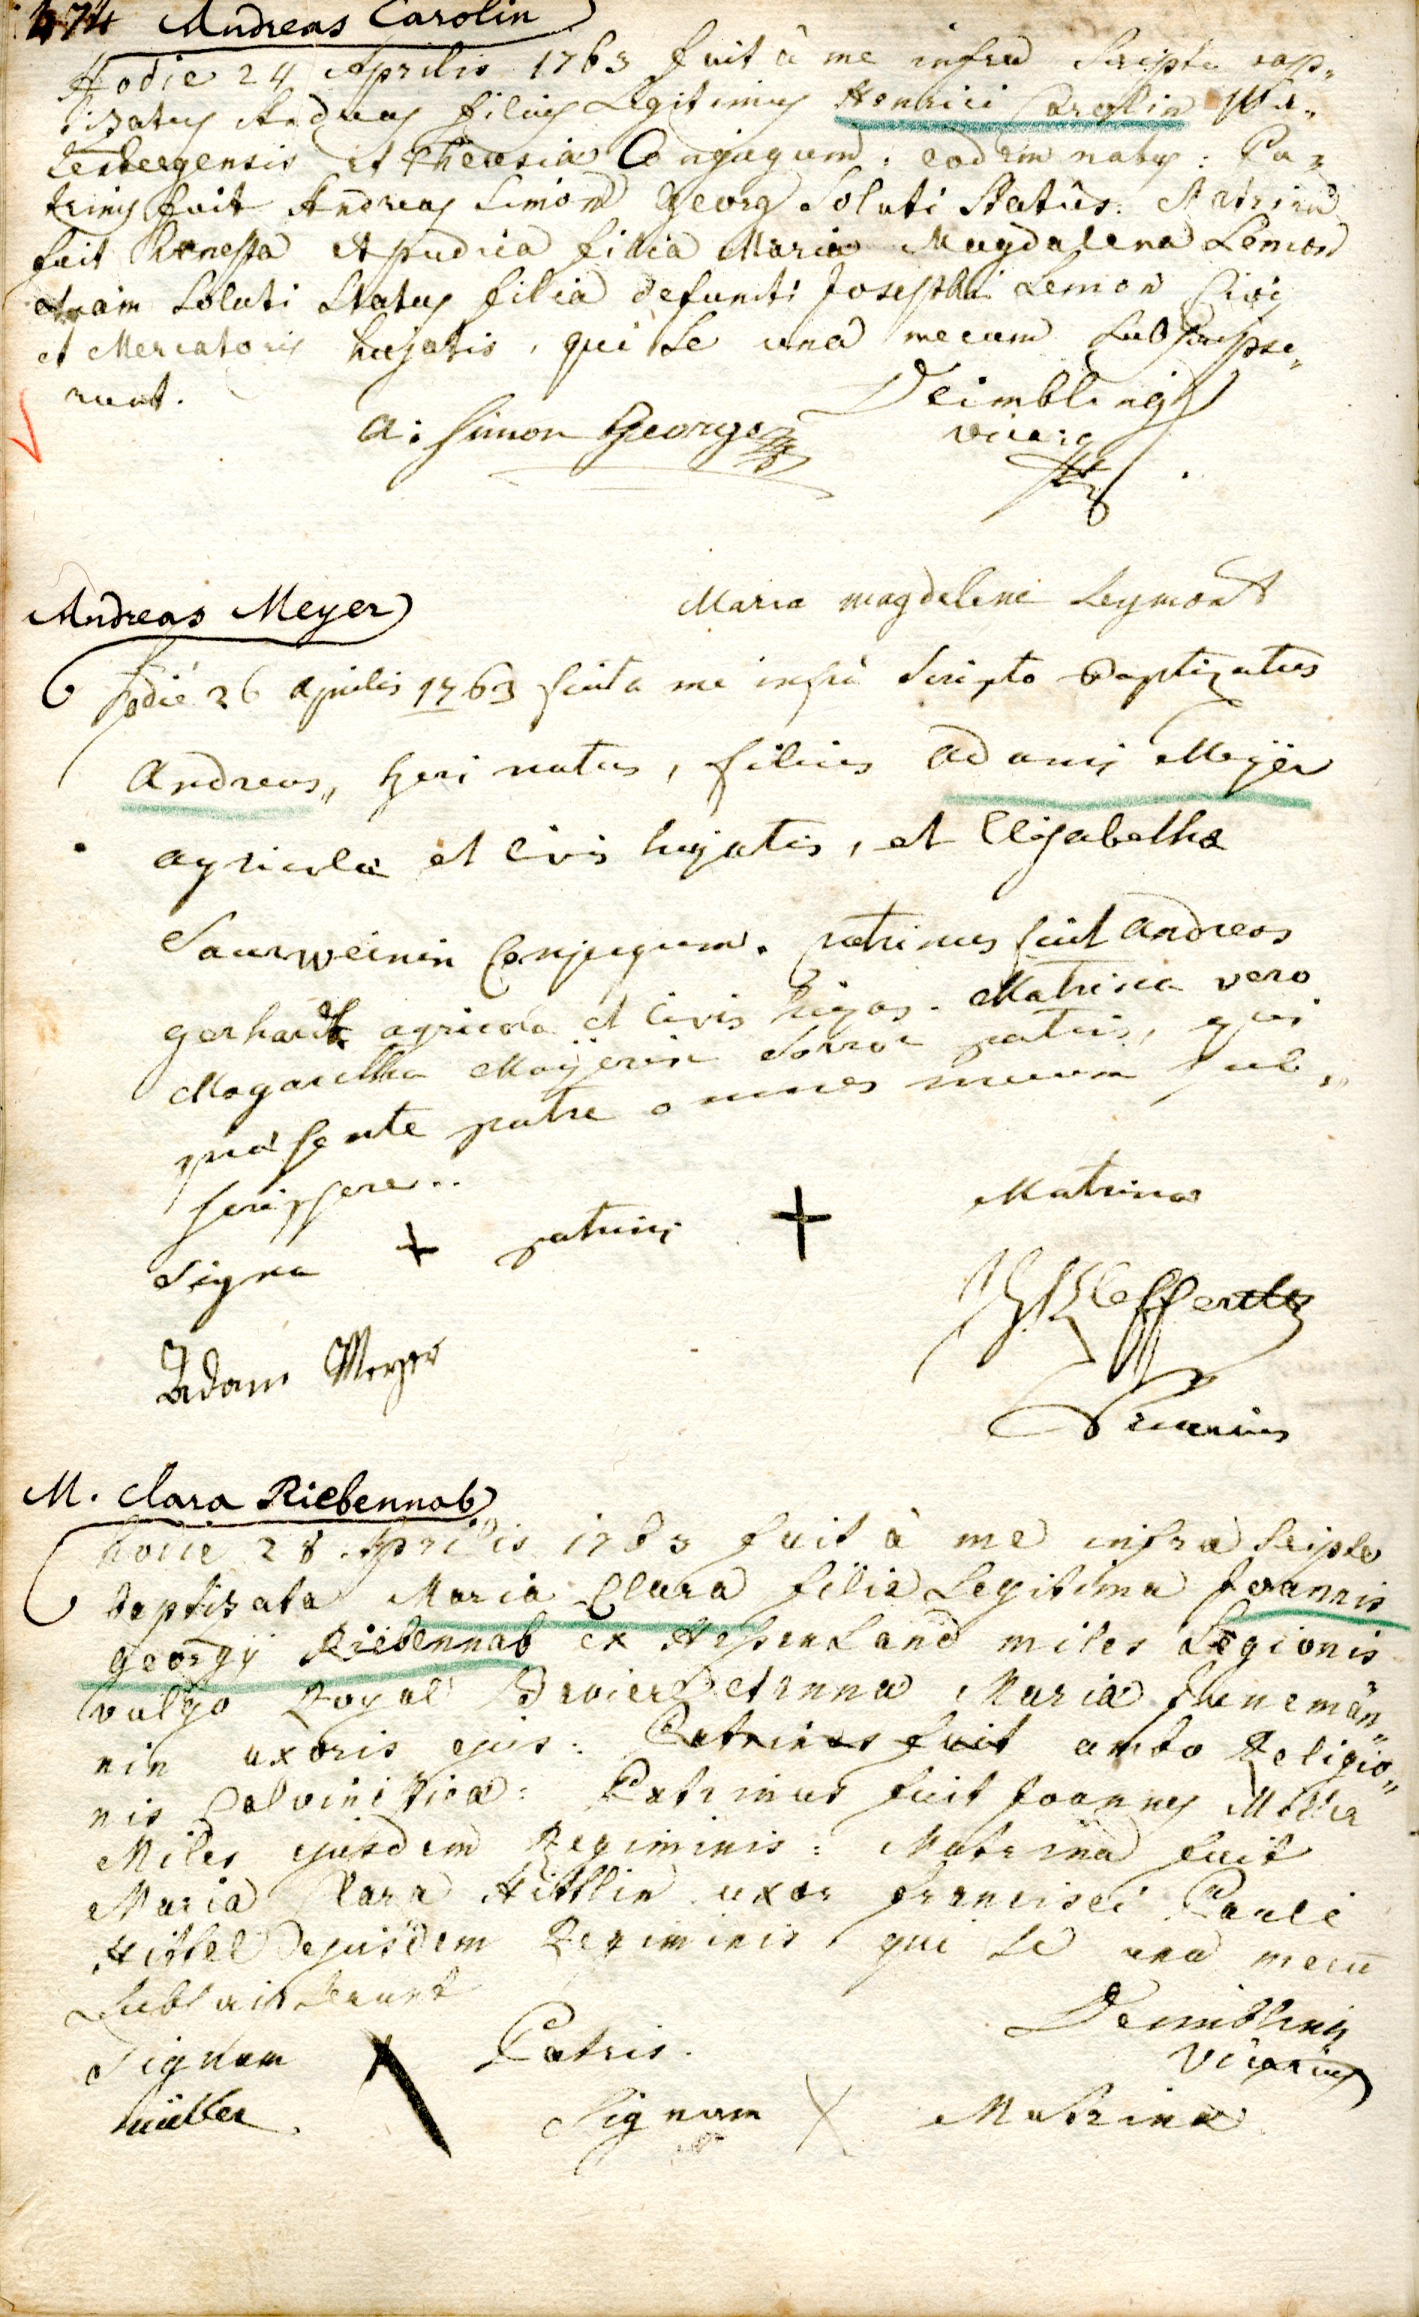 474 Andreas Carolin
Hodie 24 Aprilis 1763 fuit à me infra Scripto bap„
tizatus Andreas filius Legitimus Henrici Carolin
et Theresia Conjugum: eodem natus: Pa=
trinus fuit Andreas Simon Georg Soluti Statûs: Matrina
fuit honesta et pudica filia Maria Magdalena Lemon
etiam Soluti Status filia defuncti Josephi Lemon Civis
et Mercatoris hujatis, qui se una mecum subscripse„
runt.
Deimbling
A: Simon George
Vicarius
Maria magdalene Leymont
Andreas Meyer
hodie 26 aprilis 1763 fuit a me infra Scripto Baptizatus
Andreas, heri natus, filius adami Meÿer
agricola et Civis hujatis, et Elisabetha
Saurweinin Conjugum. patrinus fuit andreas
gerhardt agricola et Civis hujas. Matrina vero
Magaretha Meÿerin Soror patris, qui
præsente patre omnes mecum sub„
scripsere..
Signa + patrini + Matrinæ
Adam Meyer
M. Clara Riebennab
hodie 28 Aprilis 1763 fuit à me infra Scripto
baptizata Maria Clara filia Legitima Joannis
georgÿ Riebennab ex Hessenland miles Legionis
vulgo Royal Bavier et Anna Maria Junemän„
nin uxoris ejus: Patrinus fuit ambo Religio„
nis Calvinistica: Patrinus fuit Joannes Müller
Miles ejusdem Regiminis: Matrina fuit
Maria Clara Hittlin uxor francisci Pauli
Hittel ejusdem Regiminis qui se una mecū
Subscripserunt
Deimbling
Signum X Patris.
Vicarius
müller.
Signum X Matrina